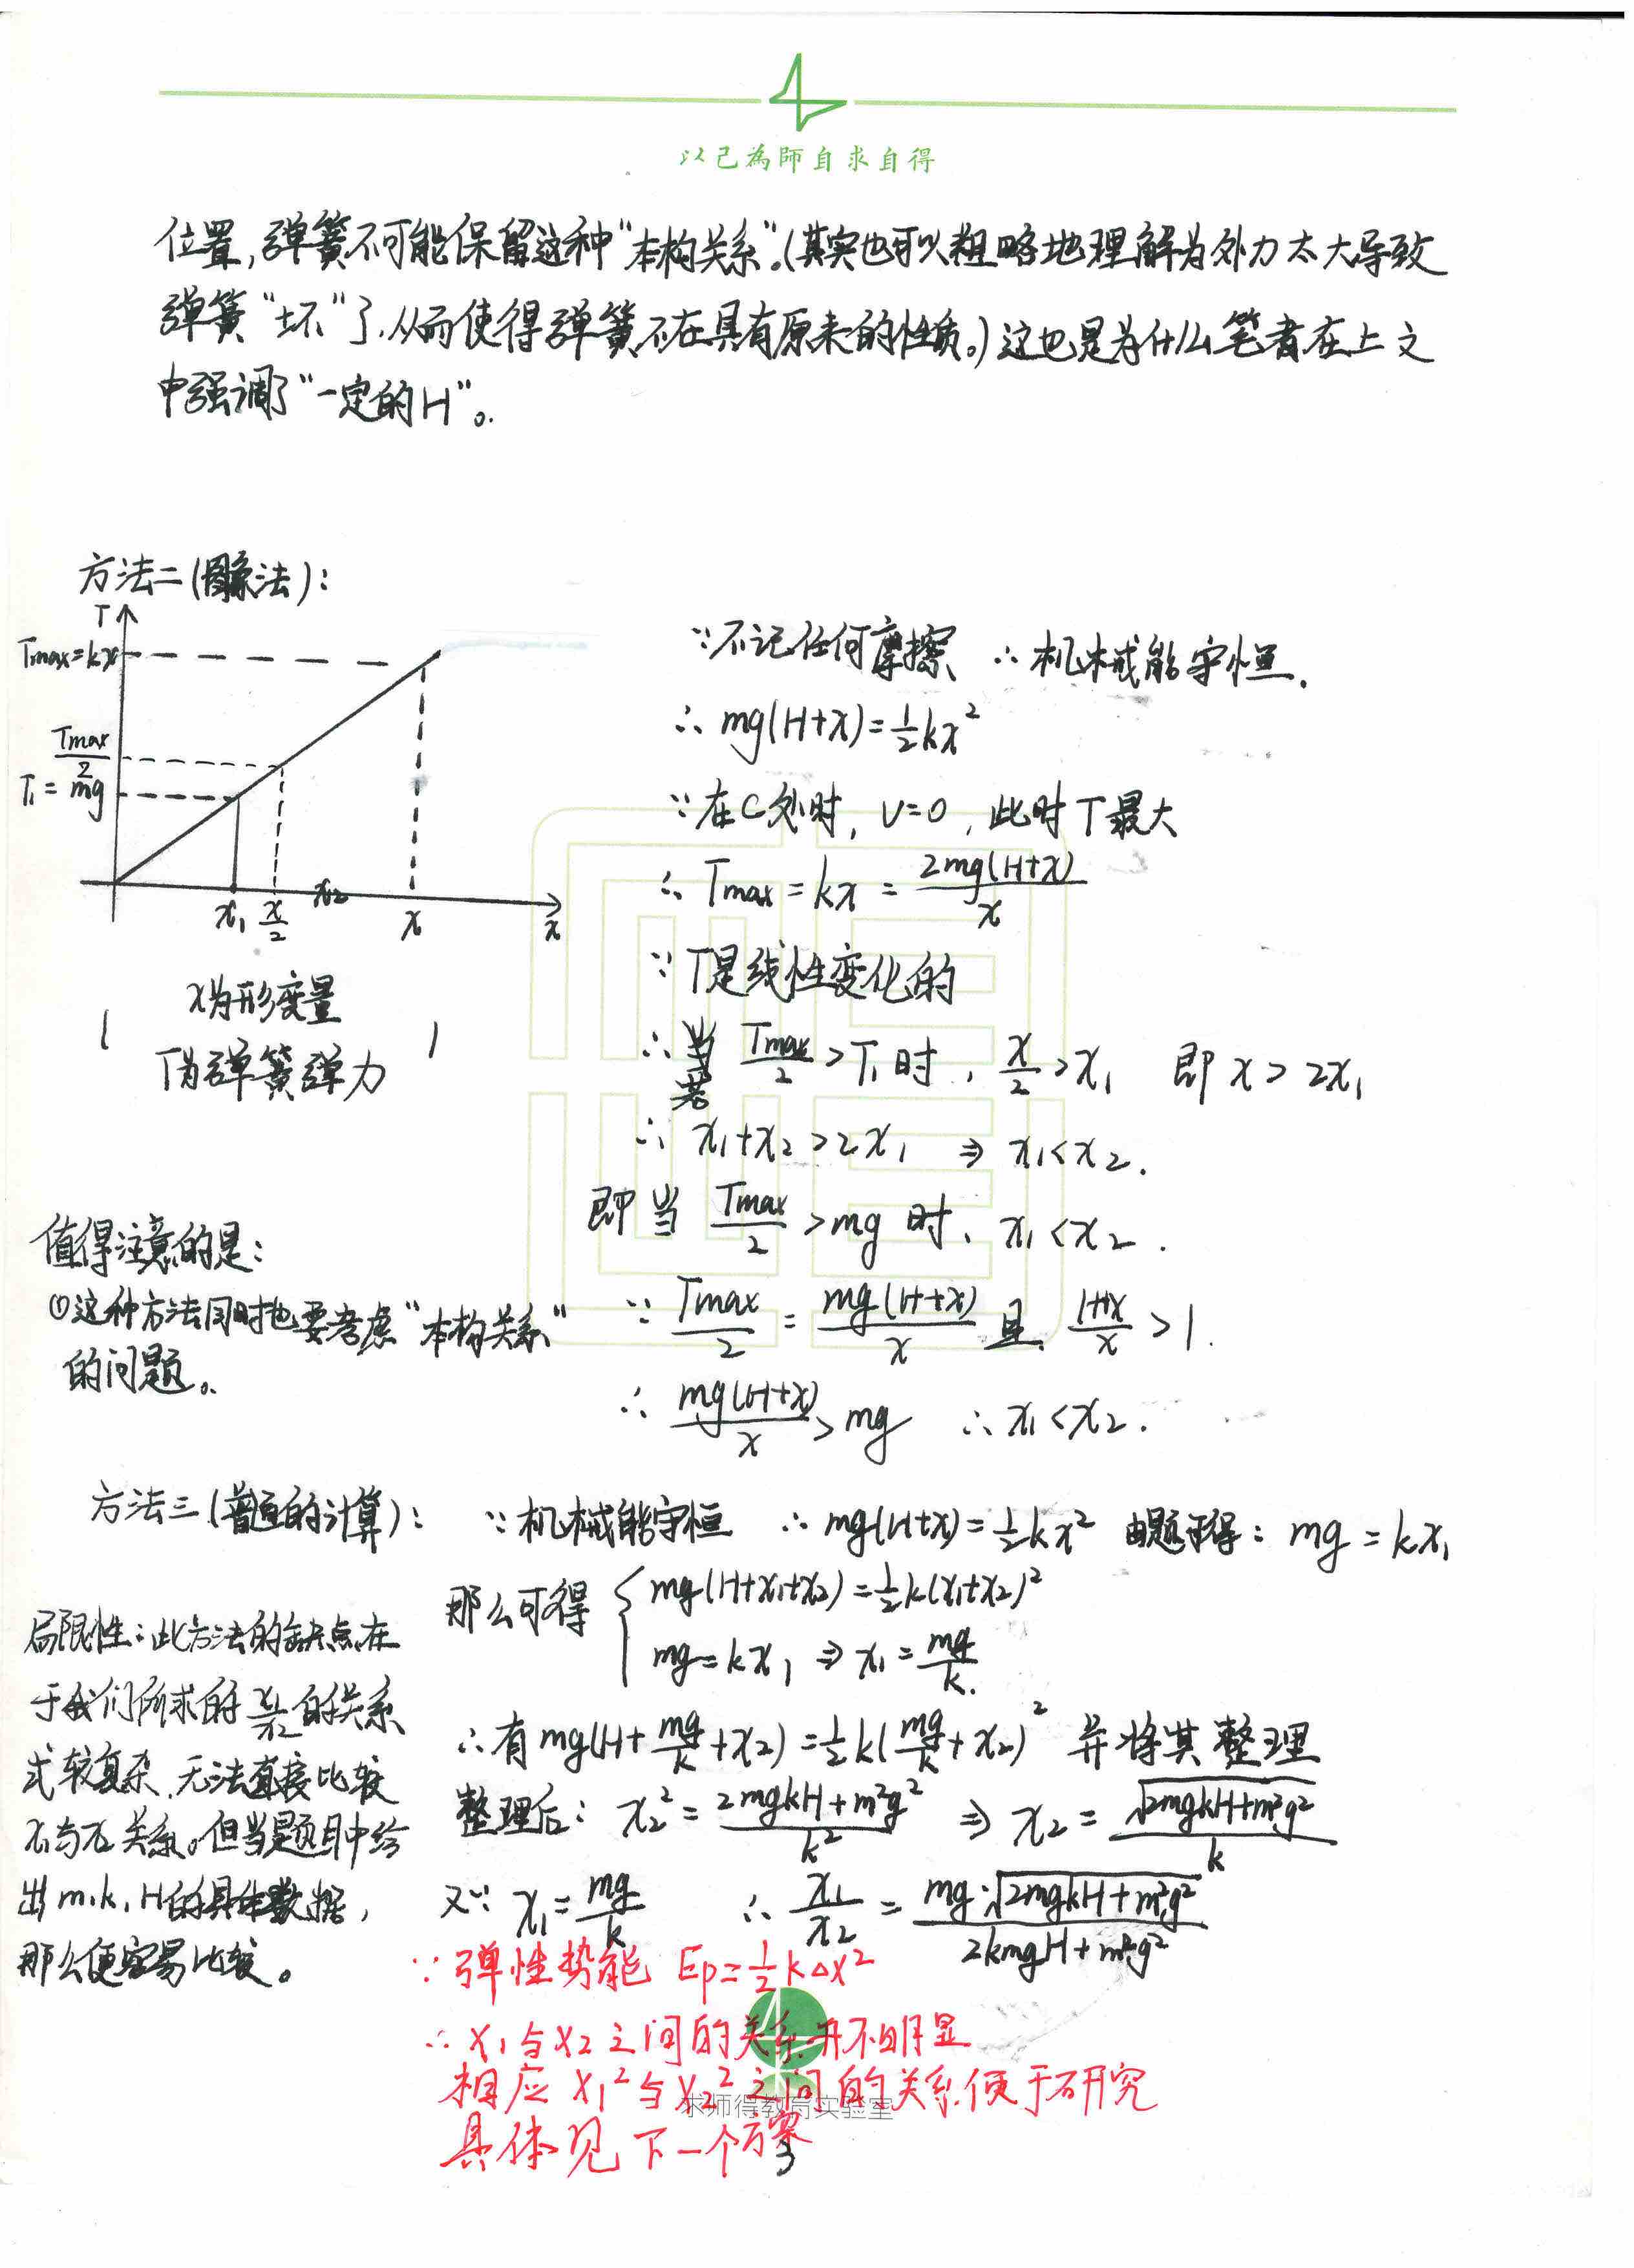 以己為師自求自得
位置,弹簧不可能保留这种“本构关系”。(其实也可以粗略地理解为外力太大导致
弹簧“坏”了,从而使得弹簧不在具有原来的性质。)这也是为什么笔者在上文
中强调了“一定的H”。
方法二(图像法):
T
Tmax=kx
Tmax/2
T₁=mg
x₁ x/2 x₂ x x
x为形变量
T为弹簧弹力
∵不记任何摩擦 ∴机械能守恒.
∴ mg(H+x)=½kx²
∵在C处时, v=0, 此时T最大
∴ Tmax=kx=2mg(H+x)/x
∵T是线性变化的
∴当 Tmax/2>T₁时, x/2>x₁ 即 x>2x₁
若
∴ x₁+x₂>2x₁ ⇒ x₁<x₂.
即当 Tmax/2>mg 时, x₁<x₂.
∵ Tmax/2=mg(H+x)/x 且 (H+x)/x>1.
∴ mg(H+x)/x>mg ∴x₁<x₂.
值得注意的是:
①这种方法同时也要考虑“本构关系”
的问题。
方法三(普通的计算): ∵机械能守恒 ∴mg(H+x)=½kx² 由题可得: mg=kx₁
那么可得 { mg(H+x₁+x₂)=½k(x₁+x₂)²
mg=kx₁ ⇒ x₁=mg/k.
∴有mg(H+mg/k+x₂)=½k(mg/k+x₂)² 并将其整理
整理后: x₂²=(2mgkH+m²g²)/k² ⇒ x₂=√(2mgkH+m²g²)/k
又∵ x₁=mg/k ∴ x₁/x₂=mg·√(2mgkH+m²g²)/(2kmgH+m²g²)
局限性:此方法的缺点在
于我们所求的x₁/x₂的关系
式较复杂,无法直接比较
x₁与x₂关系。但当题目中给
出m,k,H的具体数据,
那么便容易比较。
∵弹性势能 Ep=½kΔx²
∴x₁与x₂之间的关系并不明显
相应x₁²与x₂²之间的关系便于研究
具体见下一个方案
求师得教育实验室
3